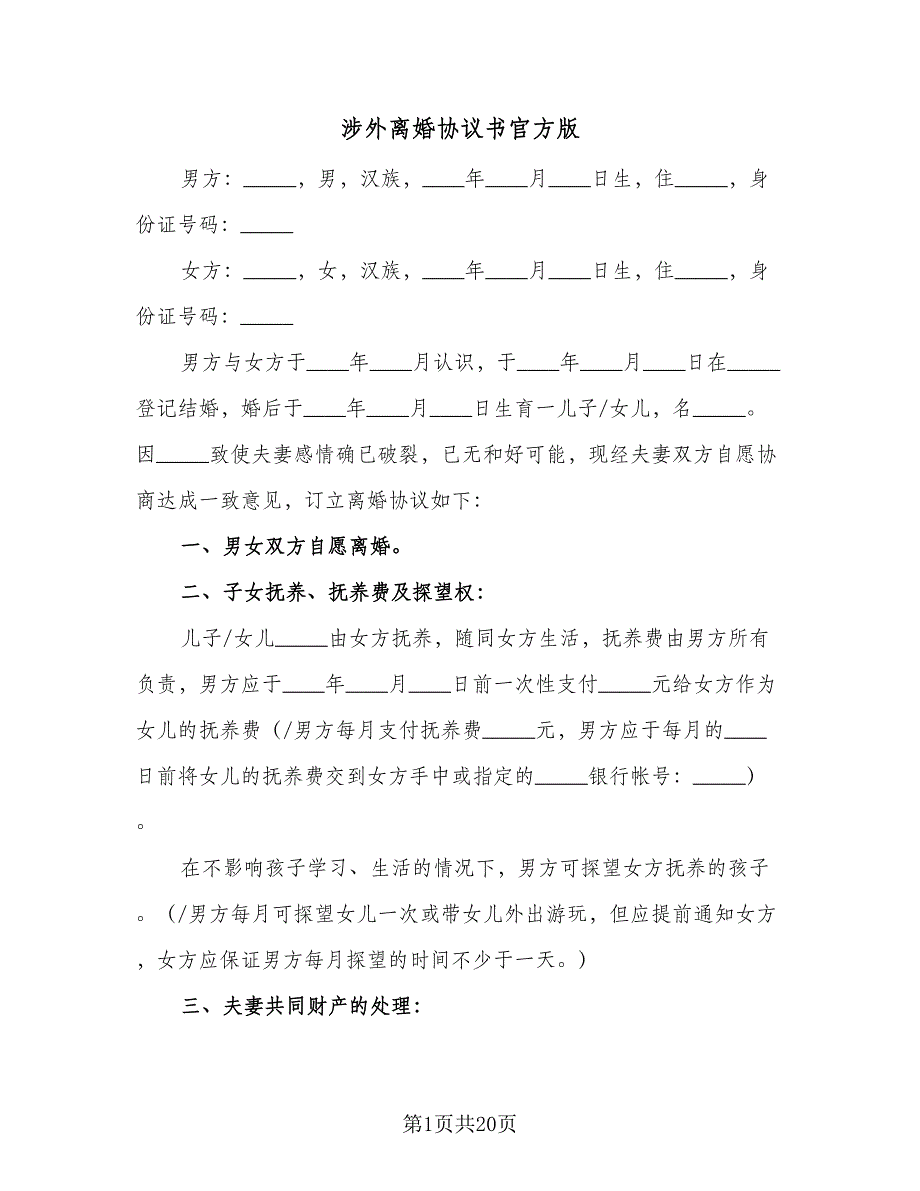 涉外离婚协议书官方版
男方：_____，男，汉族，____年____月____日生，住_____，身
份证号码：_____
女方：_____，女，汉族，____年____月____日生，住_____，身
份证号码：_____
男方与女方于____年____月认识，于____年____月____日在_____
登记结婚，婚后于____年____月____日生育一儿子/女儿，名_____。
因_____致使夫妻感情确已破裂，已无和好可能，现经夫妻双方自愿协
商达成一致意见，订立离婚协议如下：
一、男女双方自愿离婚。
二、子女抚养、抚养费及探望权：
儿子/女儿_____由女方抚养，随同女方生活，抚养费由男方所有
负责，男方应于____年____月____日前一次性支付_____元给女方作为
女儿的抚养费（/男方每月支付抚养费_____元，男方应于每月的____
日前将女儿的抚养费交到女方手中或指定的_____银行帐号：_____）
。
在不影响孩子学习、生活的情况下，男方可探望女方抚养的孩子
。（/男方每月可探望女儿一次或带女儿外出游玩，但应提前通知女方
，女方应保证男方每月探望的时间不少于一天。）
三、夫妻共同财产的处理：
第1页共20页